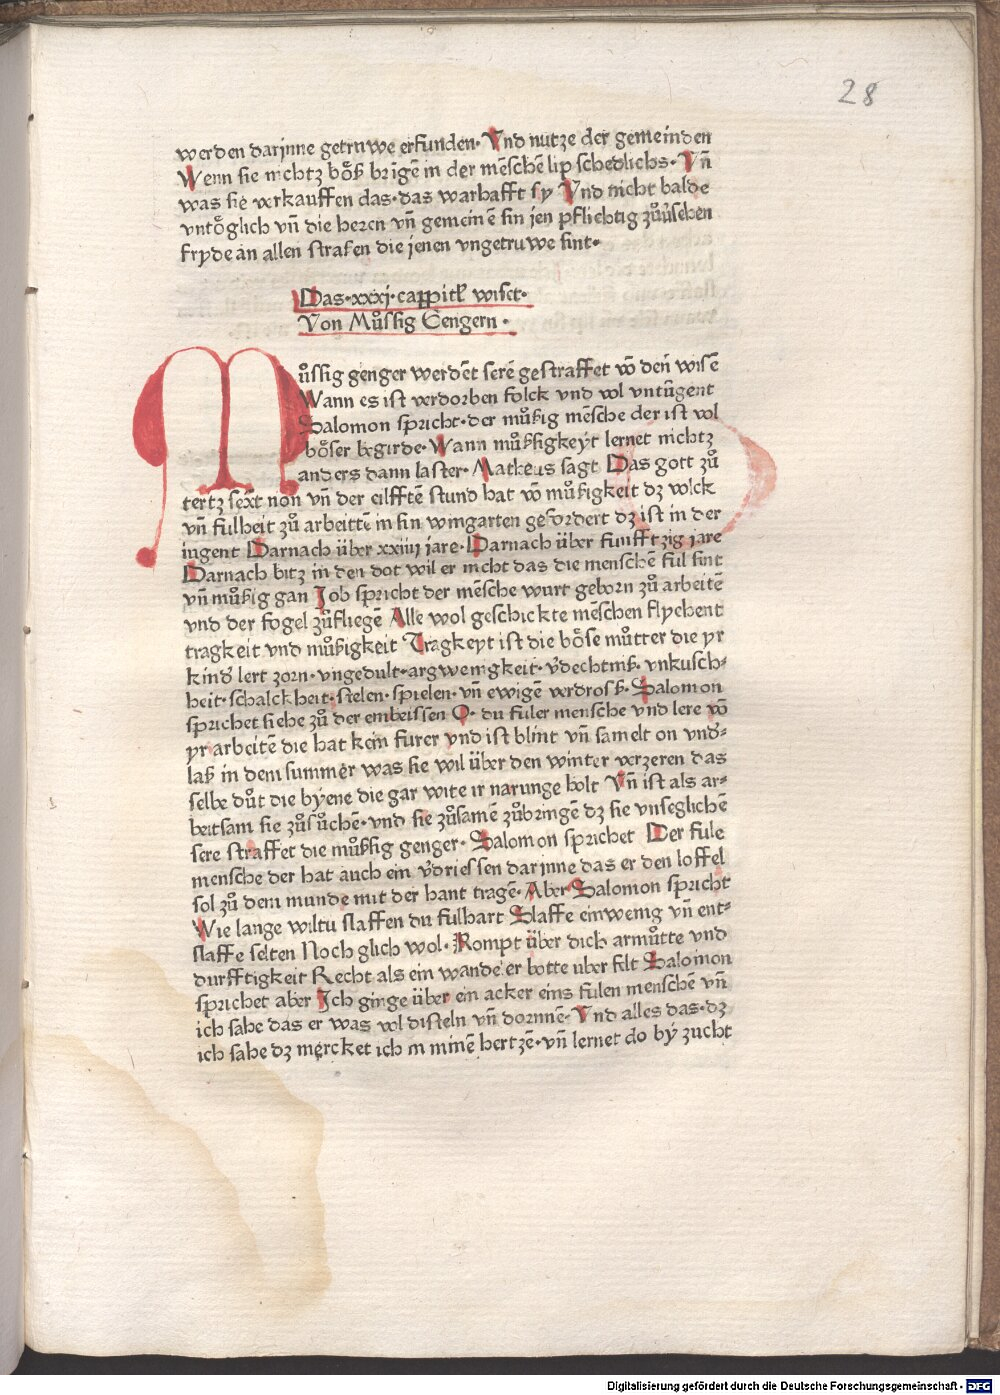 28
werden darjnne getruwe erfunden· Vnd nutze der gemeinden
Wenn sie nichtz bo̊ß brīgē in der mēschē lip schedlichs· Vn̄
was sie verkauffen das· das warhafft sy Vnd nicht balde
vnto̊glich vn̄ die heren vn̄ gemeinē sin jen pflichtig zů u̇sehen
fryde an allen strafen die jenen vngetruwe sint·
Das·xxxj·cappitl̄ wiset·
Von Můssig Gengern·
Můssig genger werdēt serē gestraffet vō den̄ wisē
Wann es ist verdorben folck vnd vol vntūgent
Salomon spricht·der můßig mēsche der ist vol
bo̊ser begirde· Wann můßsigkeyt lernet nichtz
anders dann laster· Matheus sagt Das gott zů
tertz sext non vn̄ der eilfftē stund hat vō můßigkeit dz volck
vn̄ fulheit zů arbeittē in sin wingarten gefordert dz ist in der
iugent Darnach über xxiiij jare· Darnach über funfftzig jare
Darnach bitz in den dot wil er nicht das die menschē ful sint
vn̄ můßig gan Job spricht der mēsche wurt geborn zů arbeitē
vnd der fogel zůfliegē Alle wol geschickte mēschen flyehent
tragkeit vnd můßigkeit Tragkeyt ist die bo̊se můtter die yr
kind̄ lert zorn·vngedult·argwenigkeit·v̄dechtniß·vnkusch⸗
heit·schalckheit·stelen·spielen·vn̄ ewigē verdroß· Salomon
sprichet siehe zů der embeissen O· du fuler mensche vnd lere vō
yr arbeitē die hat kein furer vnd ist blint vn̄ samelt on vnd̄⸗
laß in dem summer was sie wil über den winter verzeren das
selbe důt die byene die gar wite ir narunge holt Vn̄ ist als ar⸗
beitsam sie zůsůchē·vnd sie zůsamē zůbringē dz sie vnseglichē
sere straffet die můßig genger· Salomon sprichet Der fule
mensche der hat auch ein v̄driessen darinne das er den loffel
sol zů dem munde mit der hant tragē· Aber Salomon spricht
Wie lange wiltu slaffen du fulhart Slaffe einwenig vn̄ ent⸗
slaffe selten Noch glich wol· Kompt über dich armůtte vnd
durfftigkeit Recht als ein wandeler botte uber felt Salomon
sprichet aber Ich ginge über ein acker eins fulen menschē vn̄
ich sahe das er was vol disteln vn̄ dornne· Vnd alles das·dz
ich sahe dz mercket ich in minē hertzē·vn̄ lernet do by zucht
Digitalisierung gefördert durch die Deutsche Forschungsgemeinschaft - DFG